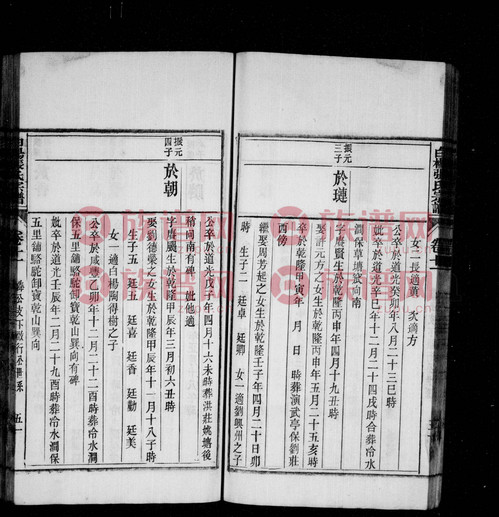 女二長適黃　次適方
公卒於道光癸卯年八月二十三巳時
妣卒於道光辛巳年十二月二十四戌時合葬冷水
澗保草塘武向南
振元三子
於璉
字廉賢生於乾隆丙申年四月十九丑時
娶許元方之女生於乾隆丙申年五月二十五亥時
卒於乾隆甲寅年　月　日　時葬演武亭保劉莊
西傍
繼娶周芳起之女生於乾隆壬子年四月二十日卯
時　生子二　廷卓　廷聊　女一適劉興州之子
公卒於道光戊子年四月十六未時葬洪莊堍塘後
稍向南有碑　妣他適
振元四子
於朝
字廣颺生於乾隆甲辰年三月初六丑時
娶劉德榮之女生於乾隆甲辰年十一月十八子時
生子五　廷喜　廷香　廷勳　廷美
女一適白楊陶得樹之子
公卒於咸豐乙卯年十二月二十二酉時葬冷水澗
保五里舖駱駝卸寶乾山巽向有碑
妣卒於道光壬辰年二月二十九酉時葬冷水澗保
五里舖駱駝卸寶乾山巽向
五一
族谱网